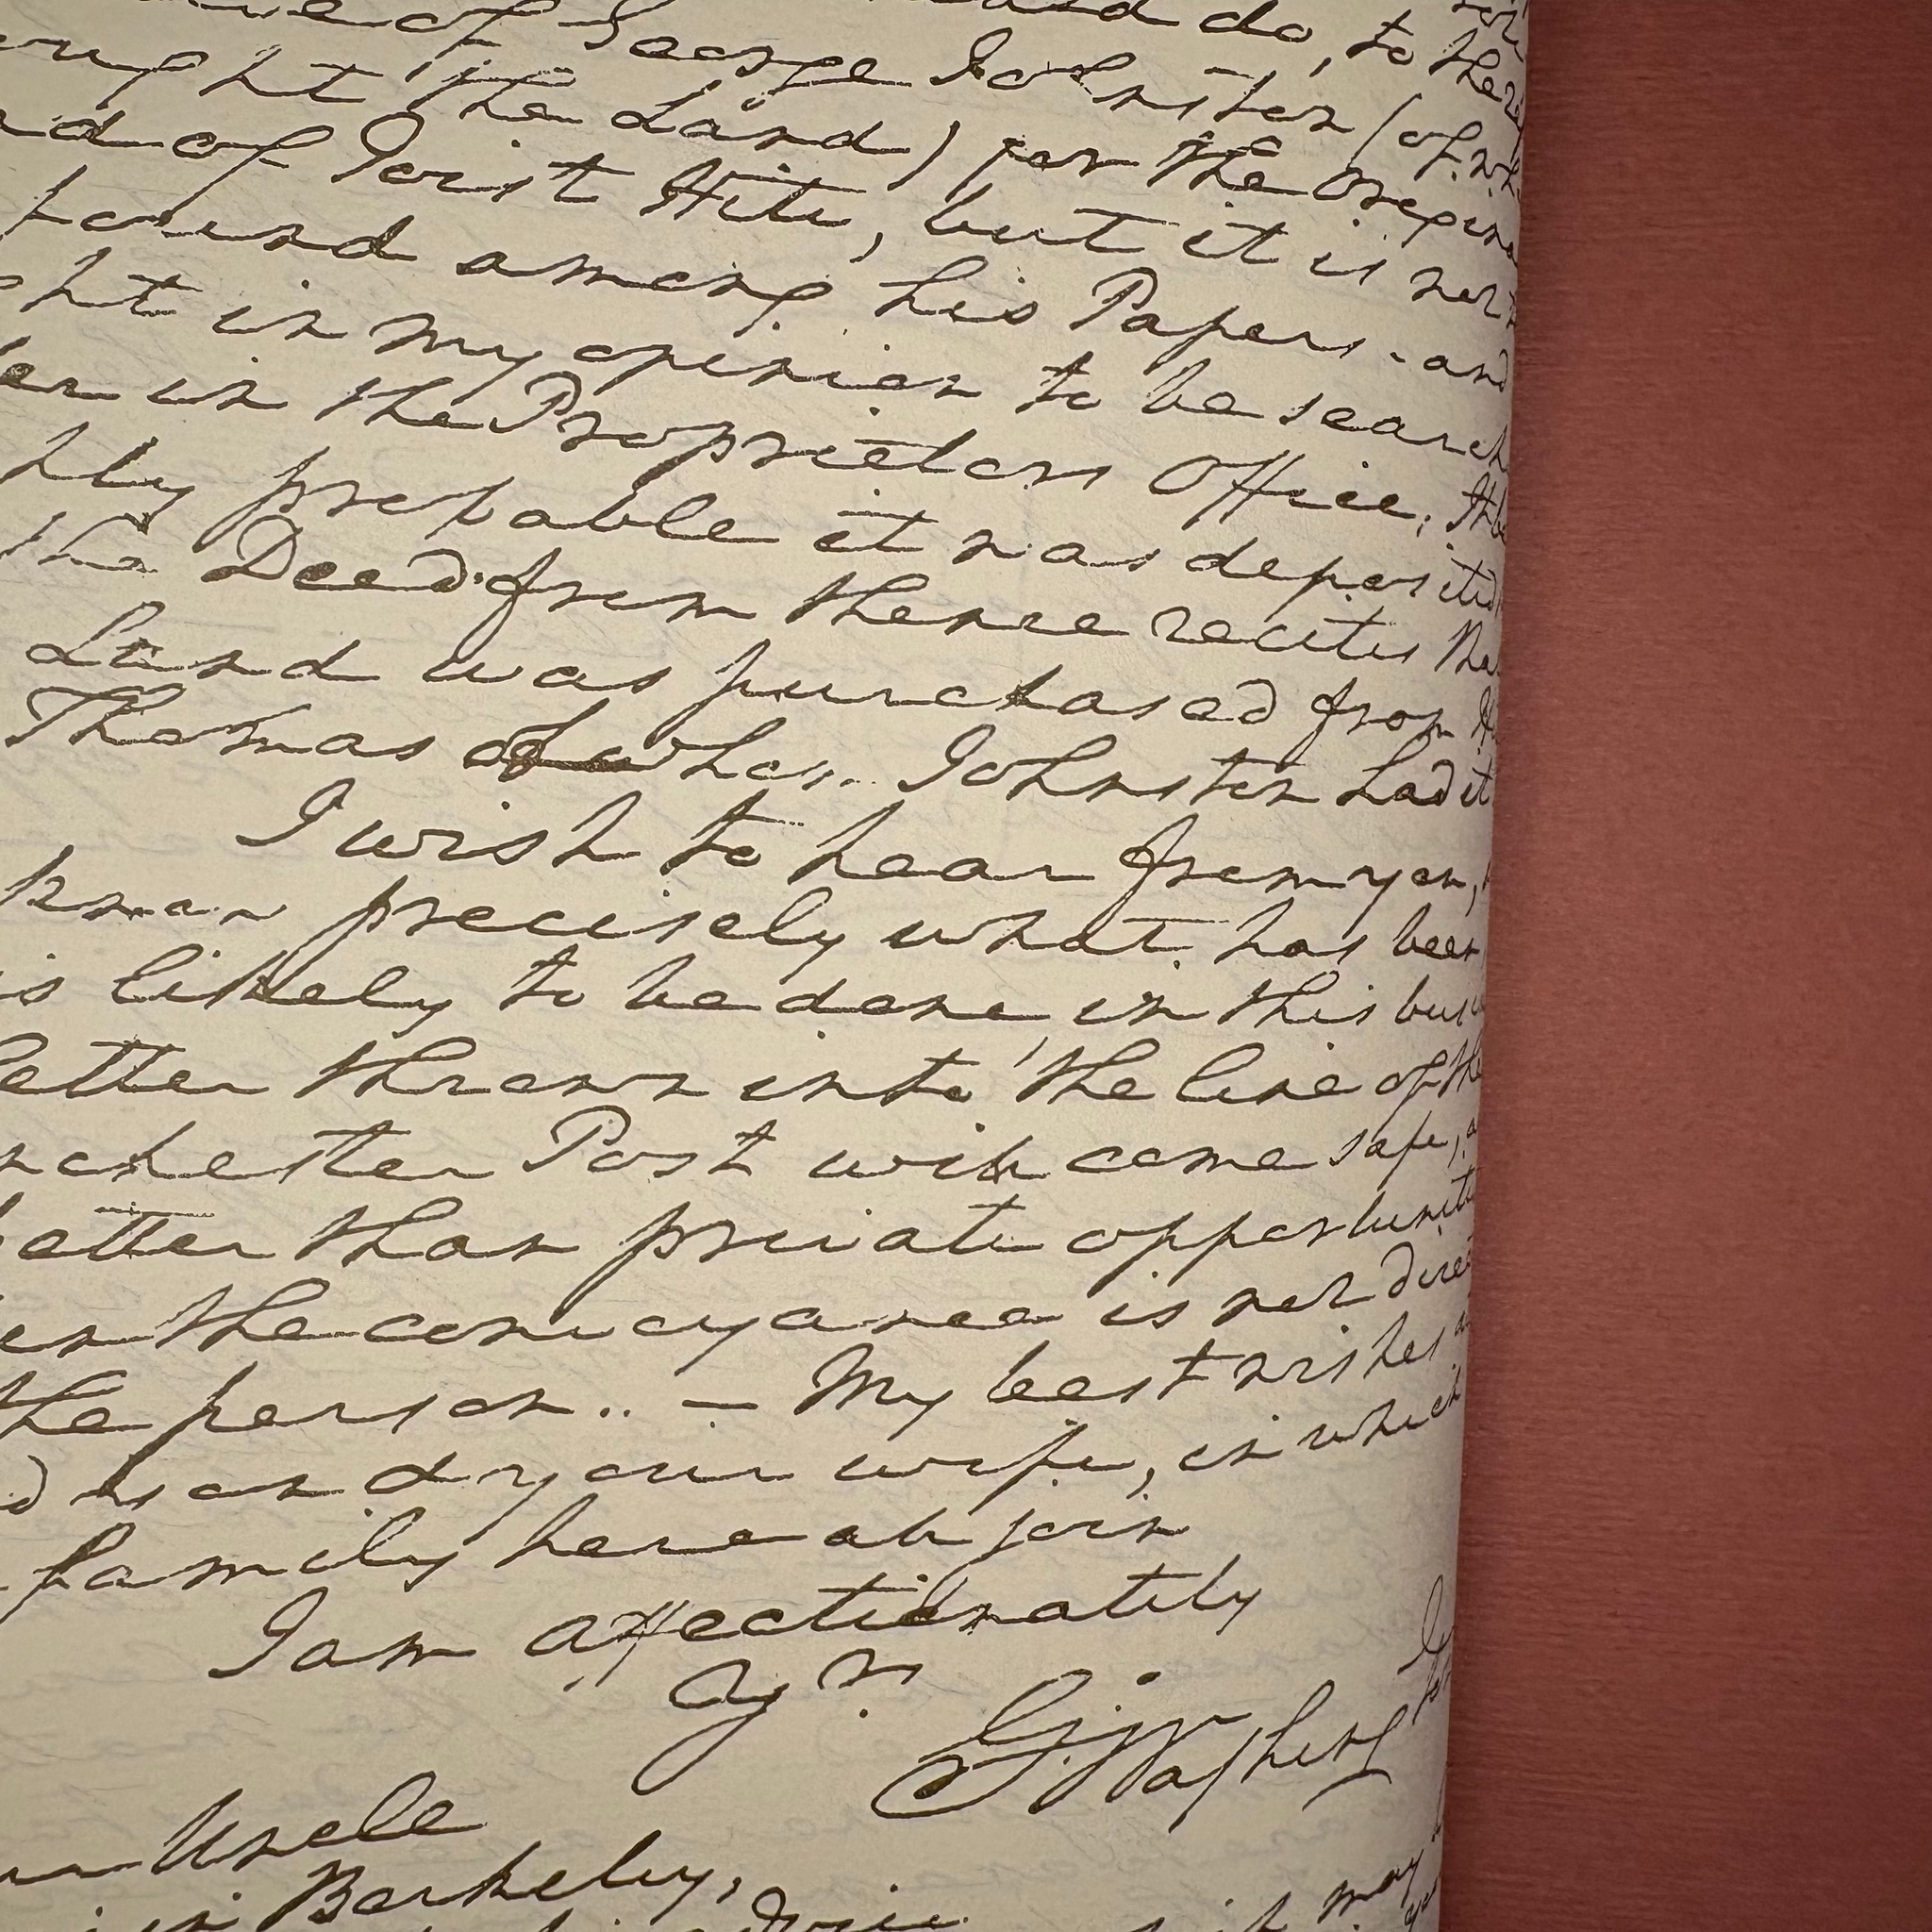 of George Johnston (of wh
ught the Land) for the Origina
d of Joist Hite, but it is not
found among his Papers - and
ht in my opinion to be search
er in the Proprietors Office; the
hly probable it was deposited
the Deed from thence recites tha
Land was purchased from
Thomas of whom Johnston had it
I wish to hear from you,
know precisely what has been
is likely to be done, in this busi
Letter thrown into the line of the
nchester Post will come safe, a
better than private opportuniti
en the conveyance is not direct
the person .. — My best wishes a
d you and your wife, in which
family here all join
I am affectionately
Yrs
G. Washing
Uncle
in Berkeley,
may